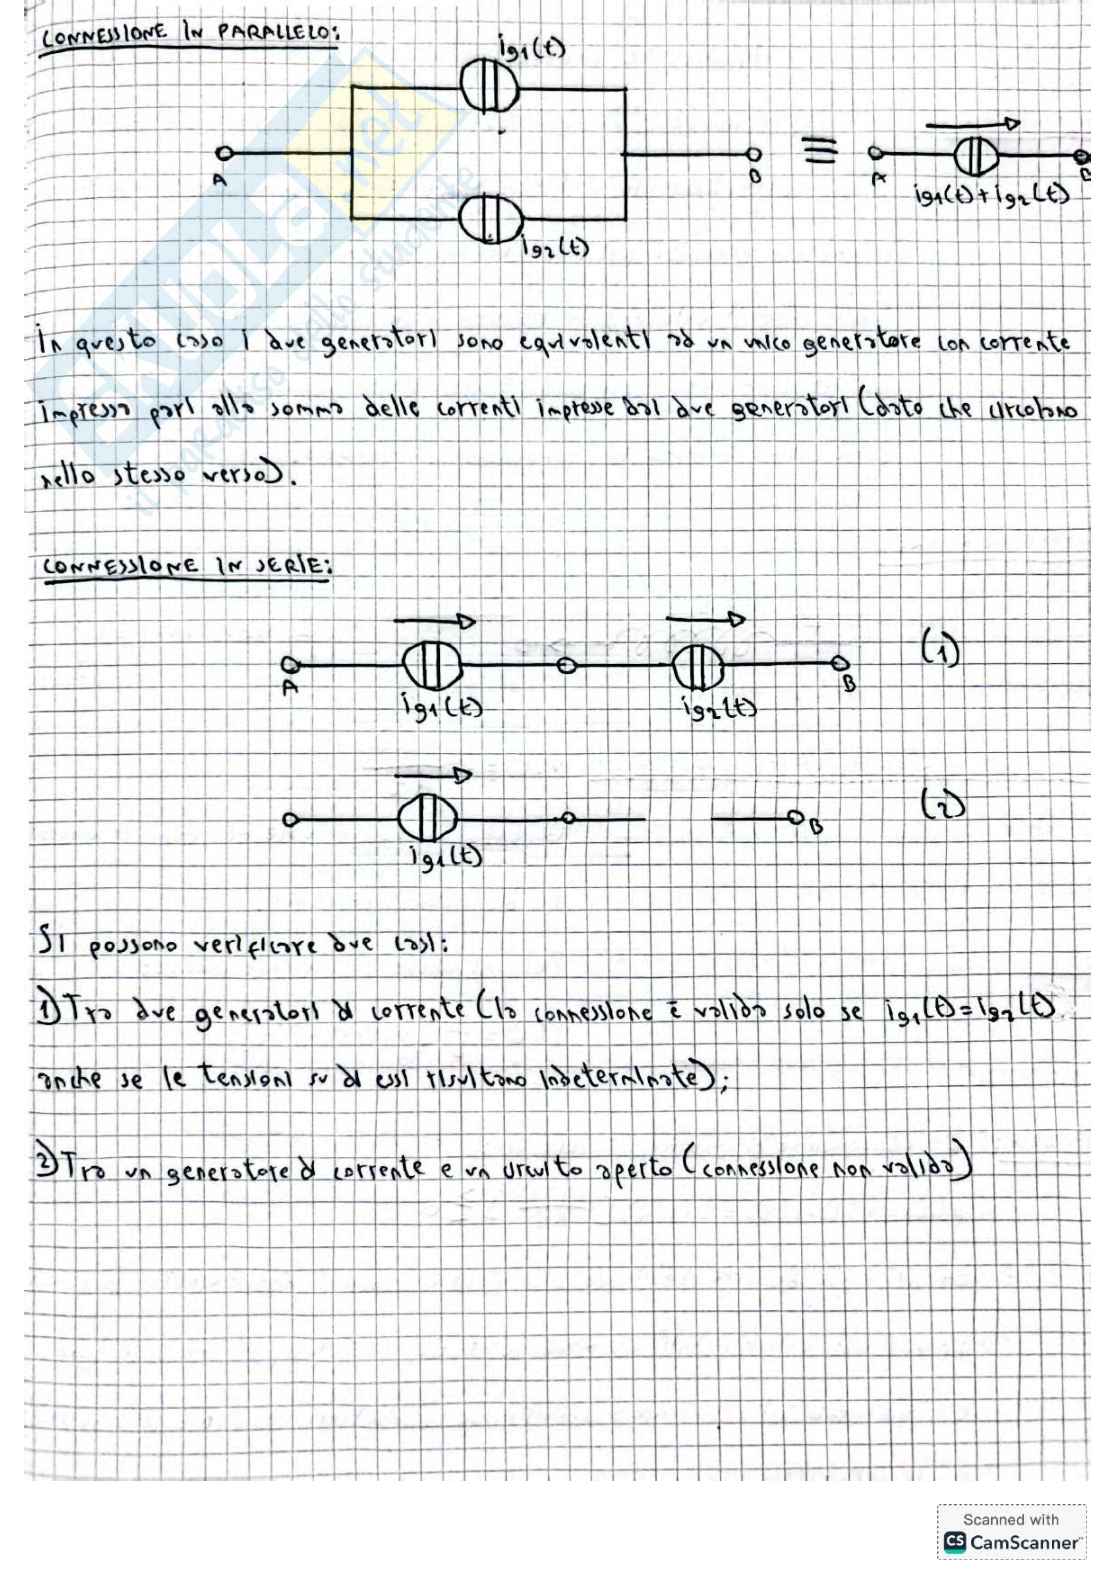 CONNESSIONE IN PARALLELO:
ig1(t)
A
B
≡
A
B
ig1(t)+ig2(t)
ig2(t)
In questo caso i due generatori sono equivalenti ad un unico generatore con corrente
impressa pari alla somma delle correnti impresse dai due generatori (dato che circolano
nello stesso verso).
CONNESSIONE IN SERIE:
A
ig1(t)
ig2(t)
B
(1)
ig1(t)
B
(2)
Si possono verificare due casi:
1) Tra due generatori di corrente (la connessione è valida solo se ig1(t)=ig2(t)
anche se le tensioni su di essi risultano indeterminate);
2) Tra un generatore di corrente e un circuito aperto (connessione non valida)
SKUOLA.net
Scanned with
CS CamScanner